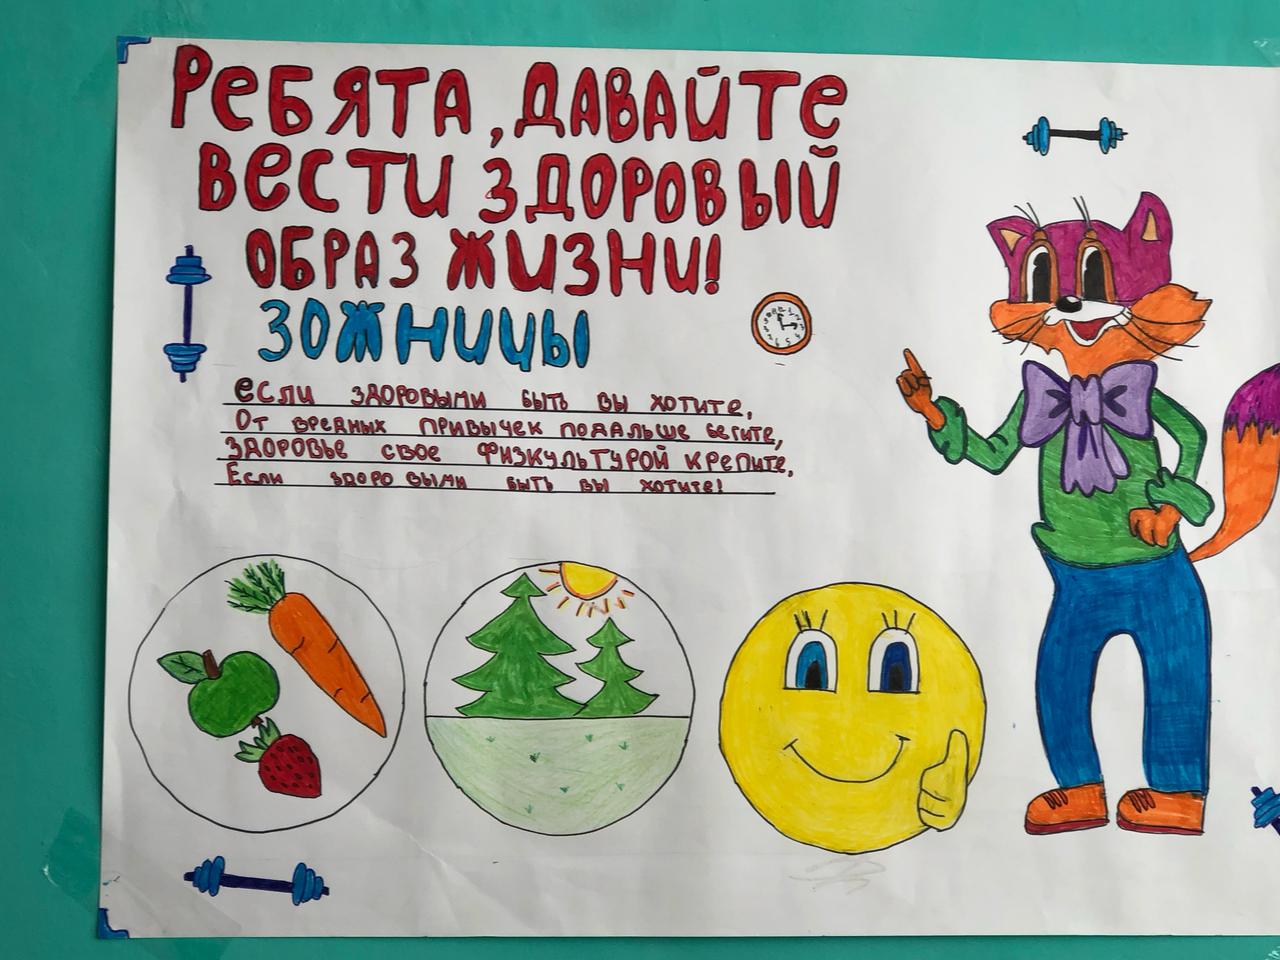 Ребята, давайте
вести здоровый
образ жизни!
ЗОЖницы
если здоровыми быть вы хотите,
От вредных привычек подальше бегите,
Здоровье свое физкультурой крепите,
Если здоровыми быть вы хотите!